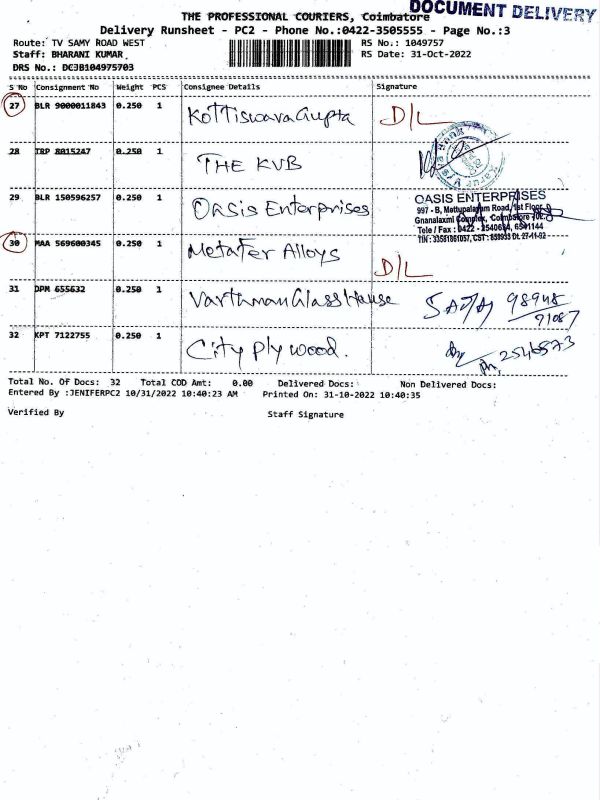 DOCUMENT DELIVERY
THE PROFESSIONAL COURIERS, Coimbatore
Delivery Runsheet - PC2 - Phone No.:0422-3505555 - Page No.:3
Route: TV SAMY ROAD WEST RS No.: 1049757
Staff: BHARANI KUMAR RS Date: 31-Oct-2022
DRS No.: DC3B104975703
S No Consignment No Weight PCS Consignee Details Signature
27 BLR 9000011843 0.250 1 Kottiswara Gupta D/L
28 TRP 8015247 0.250 1 THE KVB
29 BLR 150596257 0.250 1 Oasis Enterprises
OASIS ENTERPRISES
997 - B, Mettupalayam Road, 1st Floor,
Gnanalaxmi Complex, Coimbatore
Tele / Fax : 0422 - 2540684, 6541144
30 MAA 569600345 0.250 1 Metafer Alloys D/L
31 DPM 655632 0.250 1 Varthman Glass House 98948
91087
32 KPT 7122755 0.250 1 City Plywood. 2546573
Total No. Of Docs: 32 Total COD Amt: 0.00 Delivered Docs: Non Delivered Docs:
Entered By :JENIFERPC2 10/31/2022 10:40:23 AM Printed On: 31-10-2022 10:40:35
Verified By Staff Signature